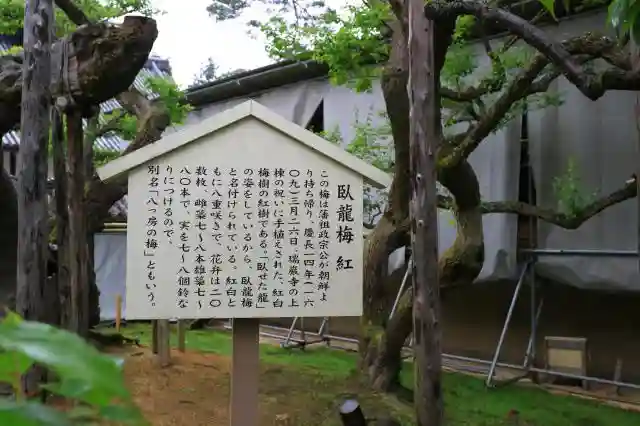 臥龍梅 紅
この梅は藩祖政宗公が朝鮮よ
り持ち帰り、慶長一四年（一六
〇九）三月二六日、瑞巌寺の上
棟の祝いに手植えされた、紅白
梅樹の紅樹である。「臥せた龍」
の姿をしているから、臥龍梅
と名付けられている。紅白と
もに八重咲きで、花弁は二〇
数枚、雌蘂七〜八本雄蘂七〜
八〇本で、実を七〜八個鈴な
りにつけるので、
別名「八っ房の梅」ともいう。